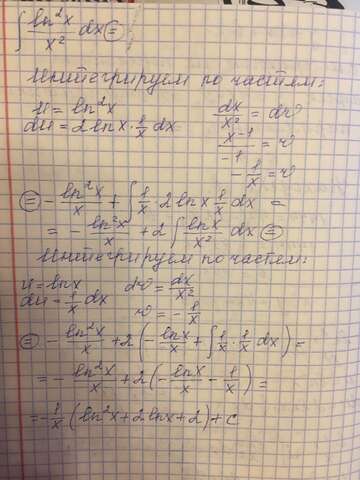 ∫ ln²x/x² dx ⊜
Интегрируем по частям:
u = ln²x    dx/x² = dv
du = 2 lnx · 1/x dx    x⁻¹/-1 = v
- 1/x = v
⊜ - ln²x/x + ∫ 1/x · 2 lnx 1/x dx =
= - ln²x/x + 2 ∫ lnx/x² dx ⊜
Интегрируем по частям:
u = lnx    dv = dx/x²
du = 1/x dx    v = - 1/x
⊜ - ln²x/x + 2(- lnx/x + ∫ 1/x · 1/x dx) =
= - ln²x/x + 2(- lnx/x - 1/x) =
= - 1/x (ln²x + 2 lnx + 2) + c